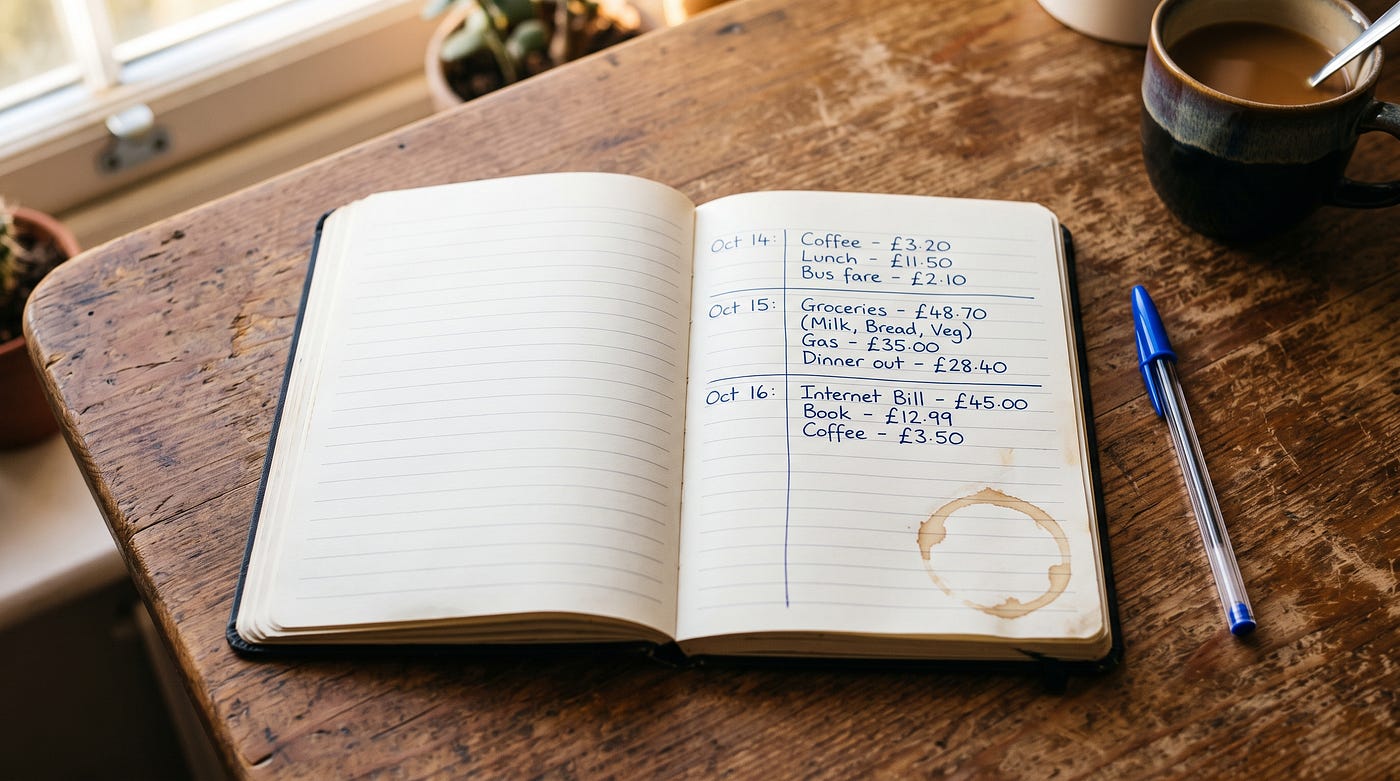 Oct 14: Coffee - £3.20
Lunch - £11.50
Bus fare - £2.10
Oct 15: Groceries - £48.70
(Milk, Bread, Veg)
Gas - £35.00
Dinner out - £28.40
Oct 16: Internet Bill - £45.00
Book - £12.99
Coffee - £3.50